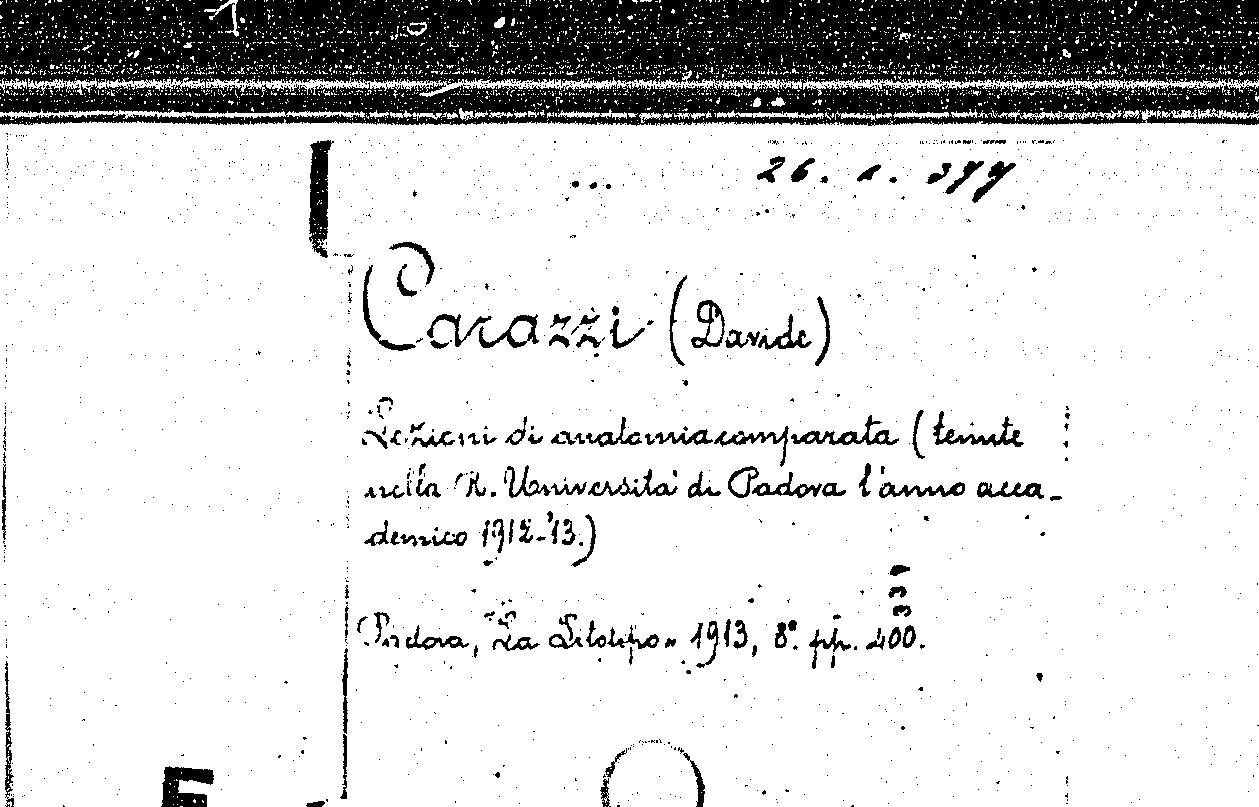 26. 1. 377
Carazzi (Davide)
Lezioni di anatomia comparata (tenute
nella R. Università di Padova l'anno acca-
demico 1912-'13.)
331
Padova, "La Litotipo" 1913, 8° pp. 400.
E